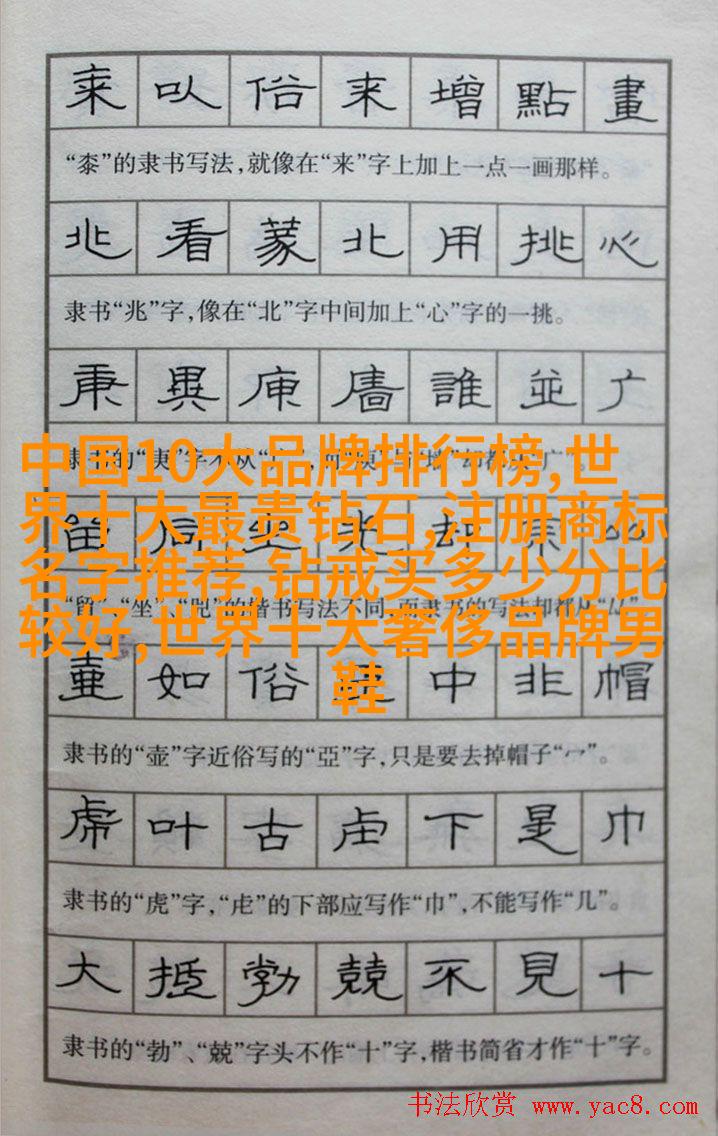 来叺俗来增點畫
“桼”的隶书写法,就像在“来”字上加上一点一画那样。
兆看蒙北用挑心
隶书“兆”字,像在“北”字中间加上“心”字的一挑。
庚異庾廧誰並广
隶书的“庚”字不从
却都从“广”。
中国10大品牌排行榜,世
界十大最贵钻石,注册商标
名字推荐,钻戒买多少分比
较好,世界十大奢侈品牌男
鞋
留同坐
却
“留”、“坐”、 的楷书写法不同,而隶书的写法却都从
壷如俗 中非帽
隶书的“壶”字近俗写的“亞”字,只是要去掉帽子“冖”。
虎叶古虍下是巾
隶书的“虎”字,“虍”的下部应写作“巾”,不能写作“几”。
大抵勃兢不見十
隶书的“勃”、“兢”字头不作“十”字,楷书简省才作“十”字。
书法欣赏 www.yac8.com